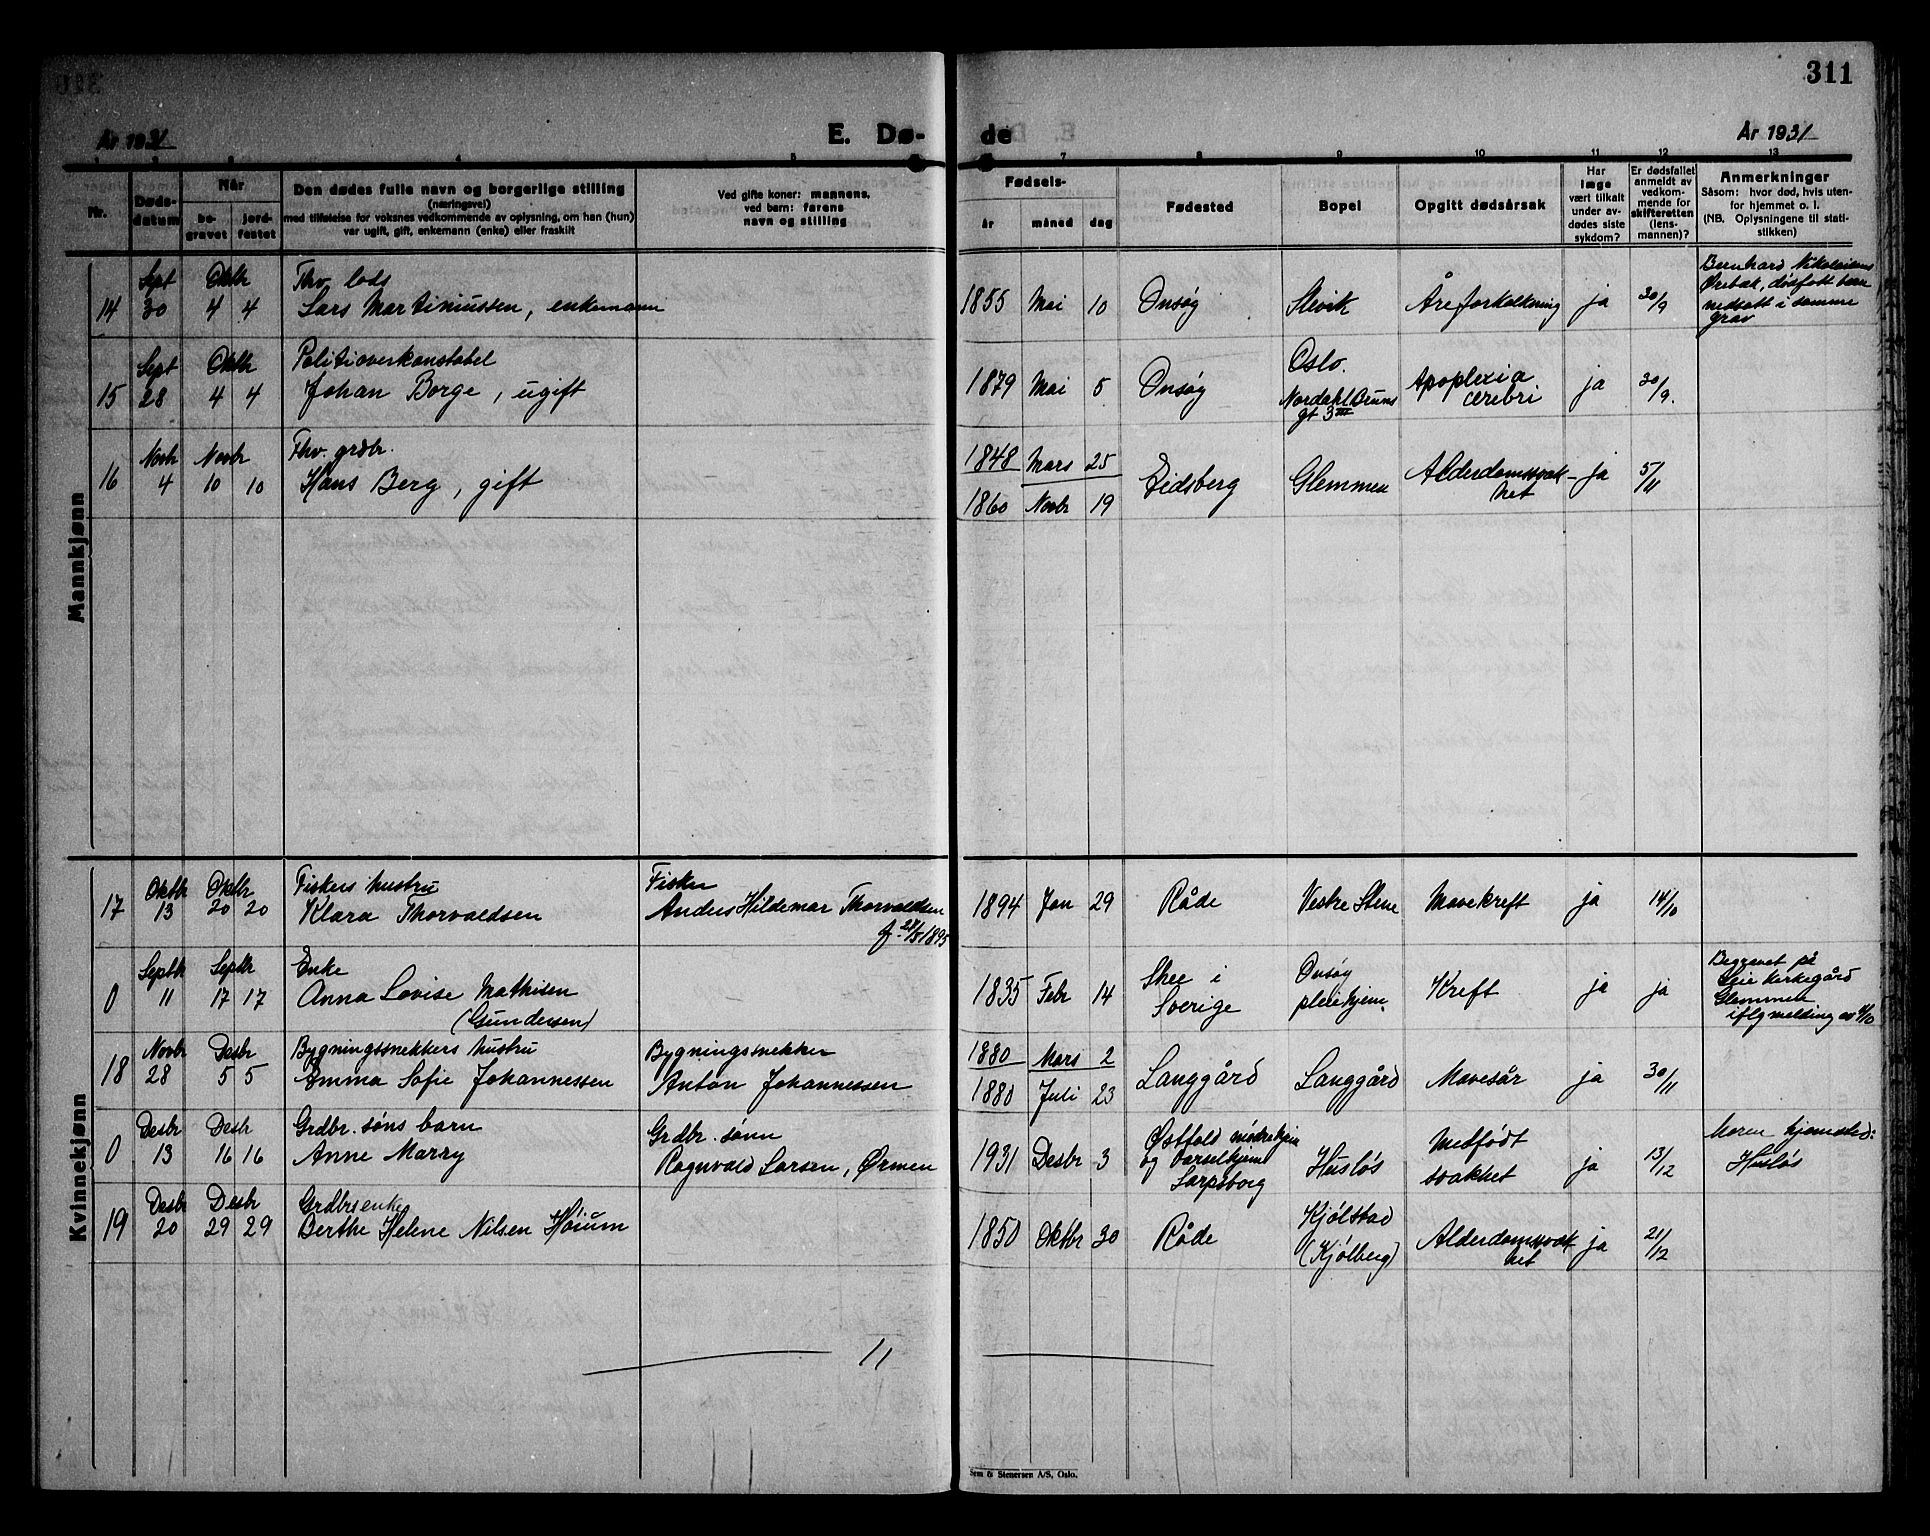 311
År 1931
E. Dø-
de
År 1931
1 2 3 4 5 7 8 9 10 11 12 13
Nr.
Døds-
datum
Når
be-
gravet
jord-
festet
Den dødes fulle navn og borgerlige stilling
(næringsvei)
med tilføielse for voksnes vedkommende av oplysning, om han (hun)
var ugift, gift, enkemann (enke) eller fraskilt
Ved gifte koner: mannens,
ved barn: farens
navn og stilling
Fødsels-
år måned dag
Fødested
Bopel
Opgitt dødsårsak
Har
læge
vært tilkalt
under av-
dødes siste
sykdom?
Er dødsfallet
anmeldt av
vedkom-
mende for
skifteretten
(lens-
mannen)?
Anmerkninger
Såsom: hvor død, hvis uten-
for hjemmet o. l.
(NB. Oplysningene til stati-
stikken)
Mannkjønn
14
Sept
30
Oktbr
4 4
Fhv. lods
Lars Martiniussen, enkemann
1855 Mai 10
Onsøy
Slevik
Åreforkalkning
ja
30/9
Bernhard Nikolaisens
dødfødt barn
nedsatt i samme
grav
15
Sept
28
Oktbr
4 4
Politioverkonstabel
Johan Borge, ugift
1879 Mai 5
Onsøy
Oslo.
Nordahl Bruns
gt 3 III
Apoplexia
cerebri
ja
30/9.
16
Novb
4
Novbr
10 10
Fhv. grdbr.
Hans Berg, gift
1848 Mars 25
1860 Novbr 19
Eidsberg
Glemmen
Alderdomssvak-
het
ja
5/11
Kvinnekjønn
17
Oktbr
13
Oktbr
20 20
Fiskers hustru
Klara Thorvaldsen
Fisker
Anders Hildemar Thorvaldsen
1894 Jan 29
Råde
Vestre Stene
Mavekreft
ja
14/10
0
Septb
11
Septbr
17 17
Enke
Anna Lovise Mathisen
(Gundersen)
1835 Febr 14
Skee i
Sverige
Onsøy
pleiehjem
Kreft
ja
ja
Begravet på
Leie kirkegård
Glemmen
iflg melding av
18
Novbr
28
Desbr
5 5
Bygningssnekkers hustru
Amma Sofie Johannessen
Bygningssnekker
Anton Johannessen
1880 Mars 2
1880 Juli 23
Langgård
Langgård
Mavesår
ja
30/11
0
Desbr
13
Desbr
16 16
Grdbr. søns barn
Anne Marry
Grdbr. sønn
Ragnvald Larsen, Ørmen
1931 Desbr 3
Østfold mødrehjem
og barselhjem
Sarpsborg
Husløs
Medfødt
svakhet
ja
13/12
Moren hjemsted:
Husløs
19
Desbr
20
Desbr
29 29
Grdbrs enke
Berthe Helene Nilsen Høium
1850 Oktbr 30
Råde
Kjølstad
(Kjølberg)
Alderdomssvak
het
ja
21/12
11
Sem & Stenersen A/S, Oslo.